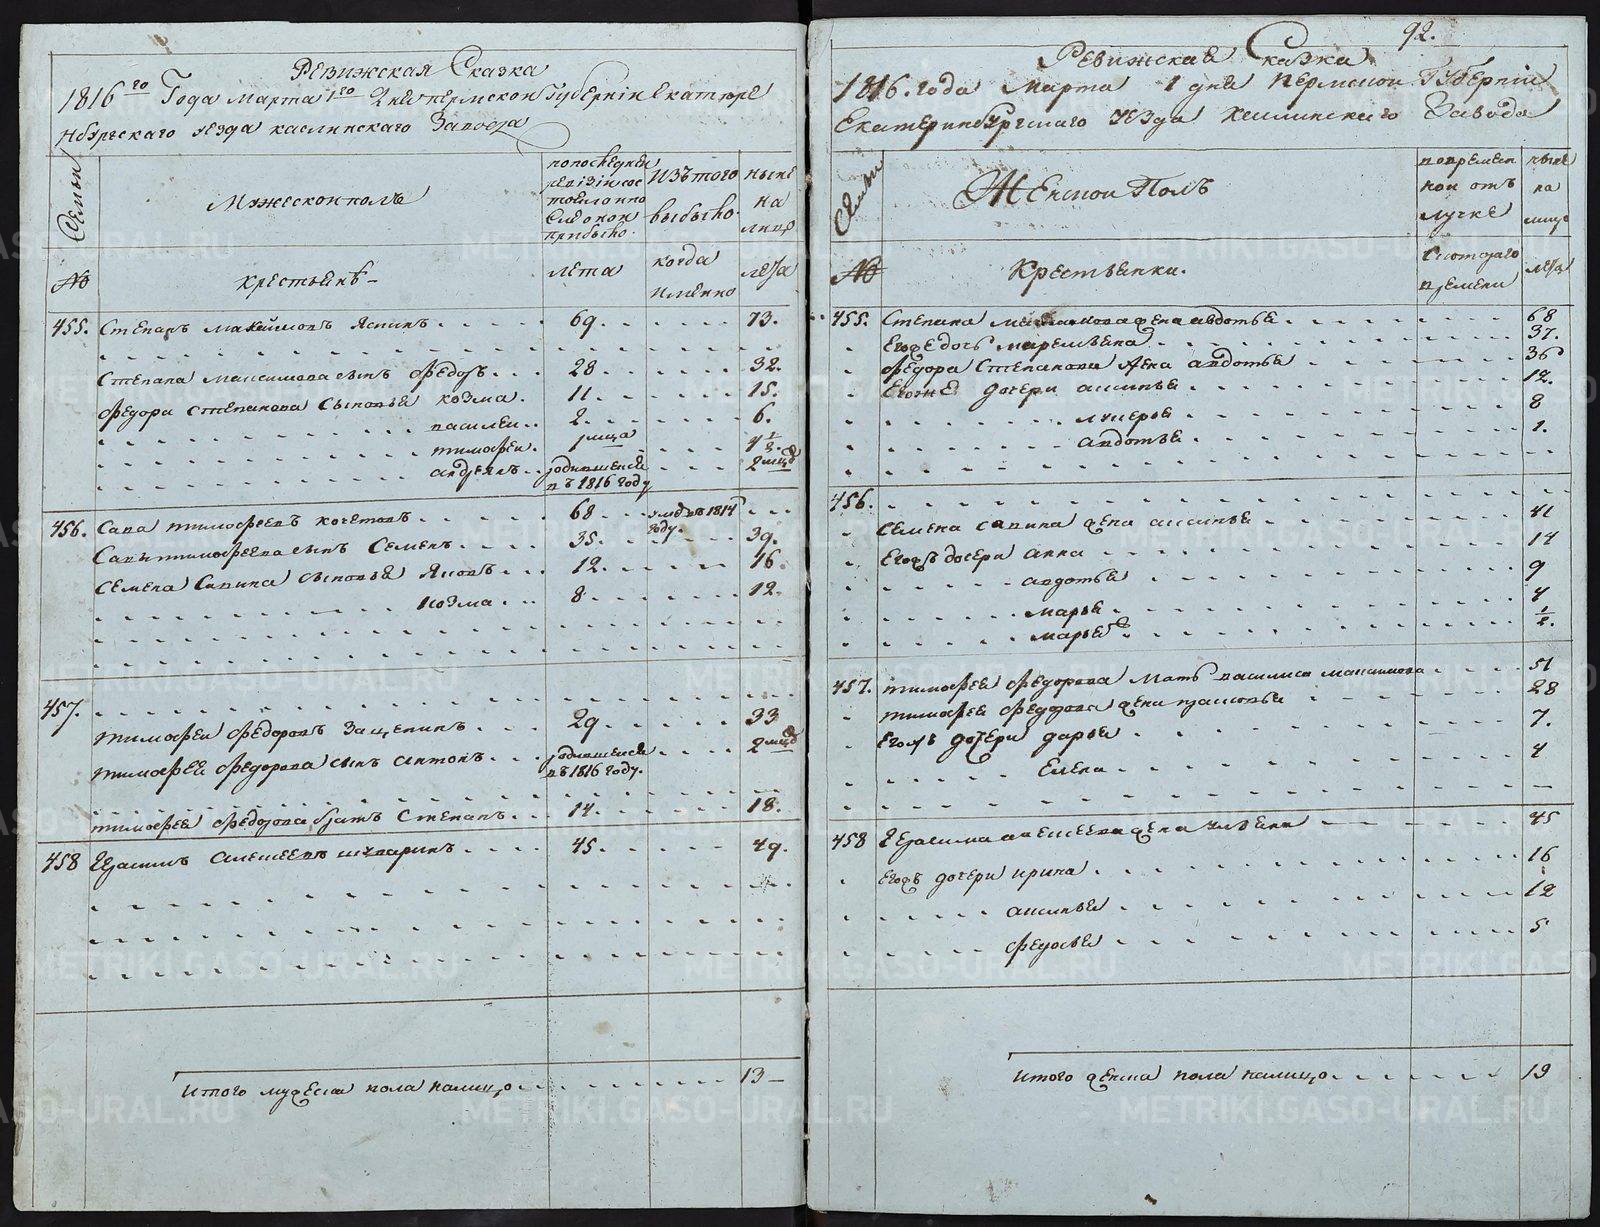 Ревижская Сказка
1816го Года марта 1го Дня пермской Губернiи Екатере
нбурьскаго уезда каслинскаго Завода
Семьи
Мужеской полъ
по последней
ревизiи сос
тояло и по
сле оной
прибыло
Изъ того
выбыло
ныне
на
лицо
№
крестьянъ
лета
когда
имянно
лета
455. Степанъ Максимовъ Яснинъ 69. 73.
Степана Максимова сынъ федоръ 28 32.
федора степанова сыновья козма. 11 15.
василеи 2 6.
тимофеи. 1 мца 4 1/2
андреянъ родившейся 2 мца
въ 1816 году
456. Сава тимофеевъ кочетовъ 68 умре въ 1814
году.
Савы тимофеева сынъ Семенъ 35 39.
Семена Савина сыновья Яковъ 12 16.
козма 8 12.
457.
тимофеи федоровъ Защепинъ 29 33
тимофея федорова сынъ антонъ родившейся 2 мца
въ 1816 году.
тимофея федорова братъ Степанъ 14. 18.
458 Герасимъ алексеевъ шухаринъ 45 49.
Итого мужеска пола налицо 13
92.
Ревижская Сказка
1816. года Марта 1 дня Пермской Губернiи
Екатеринбургскаго уезда Каслинскаго Завода
Семьи
Женской Полъ
во времен
ной от
лучке
ныне
на
лице
№
Крестьянки.
с которого
времени
лета
455. Степана Максимова жена авдотья 68
Его же дочь маремьяна 37.
федора Степанова жена авдотья 36
Его же дочери аксинья 12.
лукерья 8
авдотья 1.
456.
Семена савина жена аксинья 41
Егожъ дочери анна 14
авдотья 9
марья 4
марья 1/2.
457. тимофея федорова мать василиса максимова 51
тимофея федорова жена прасковья 28
Егожъ дочери дарья 7.
Елена 4
458 Герасима алексеева жена ульяна 45
Егожъ дочери ирина 16
аксинья 12
федосья 5
Итого женска пола налицо 19
METRIKI.GASO-URAL.RU